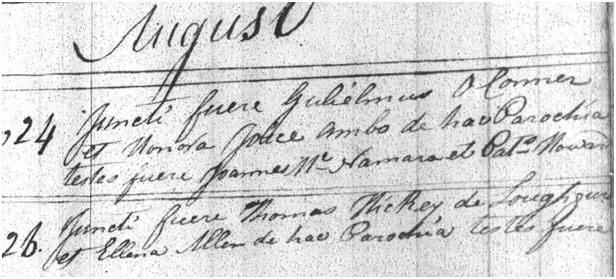 August
24 Juncti fuere Guliélmus O Conner
et Honora Joice ambo de hac Parochia
testes fuere Joannes Mc Namara et Patd Howard
26. Juncti fuere Thomas Hickey de Loughgur
et Ellena Allen de hac Parochia testes fuere